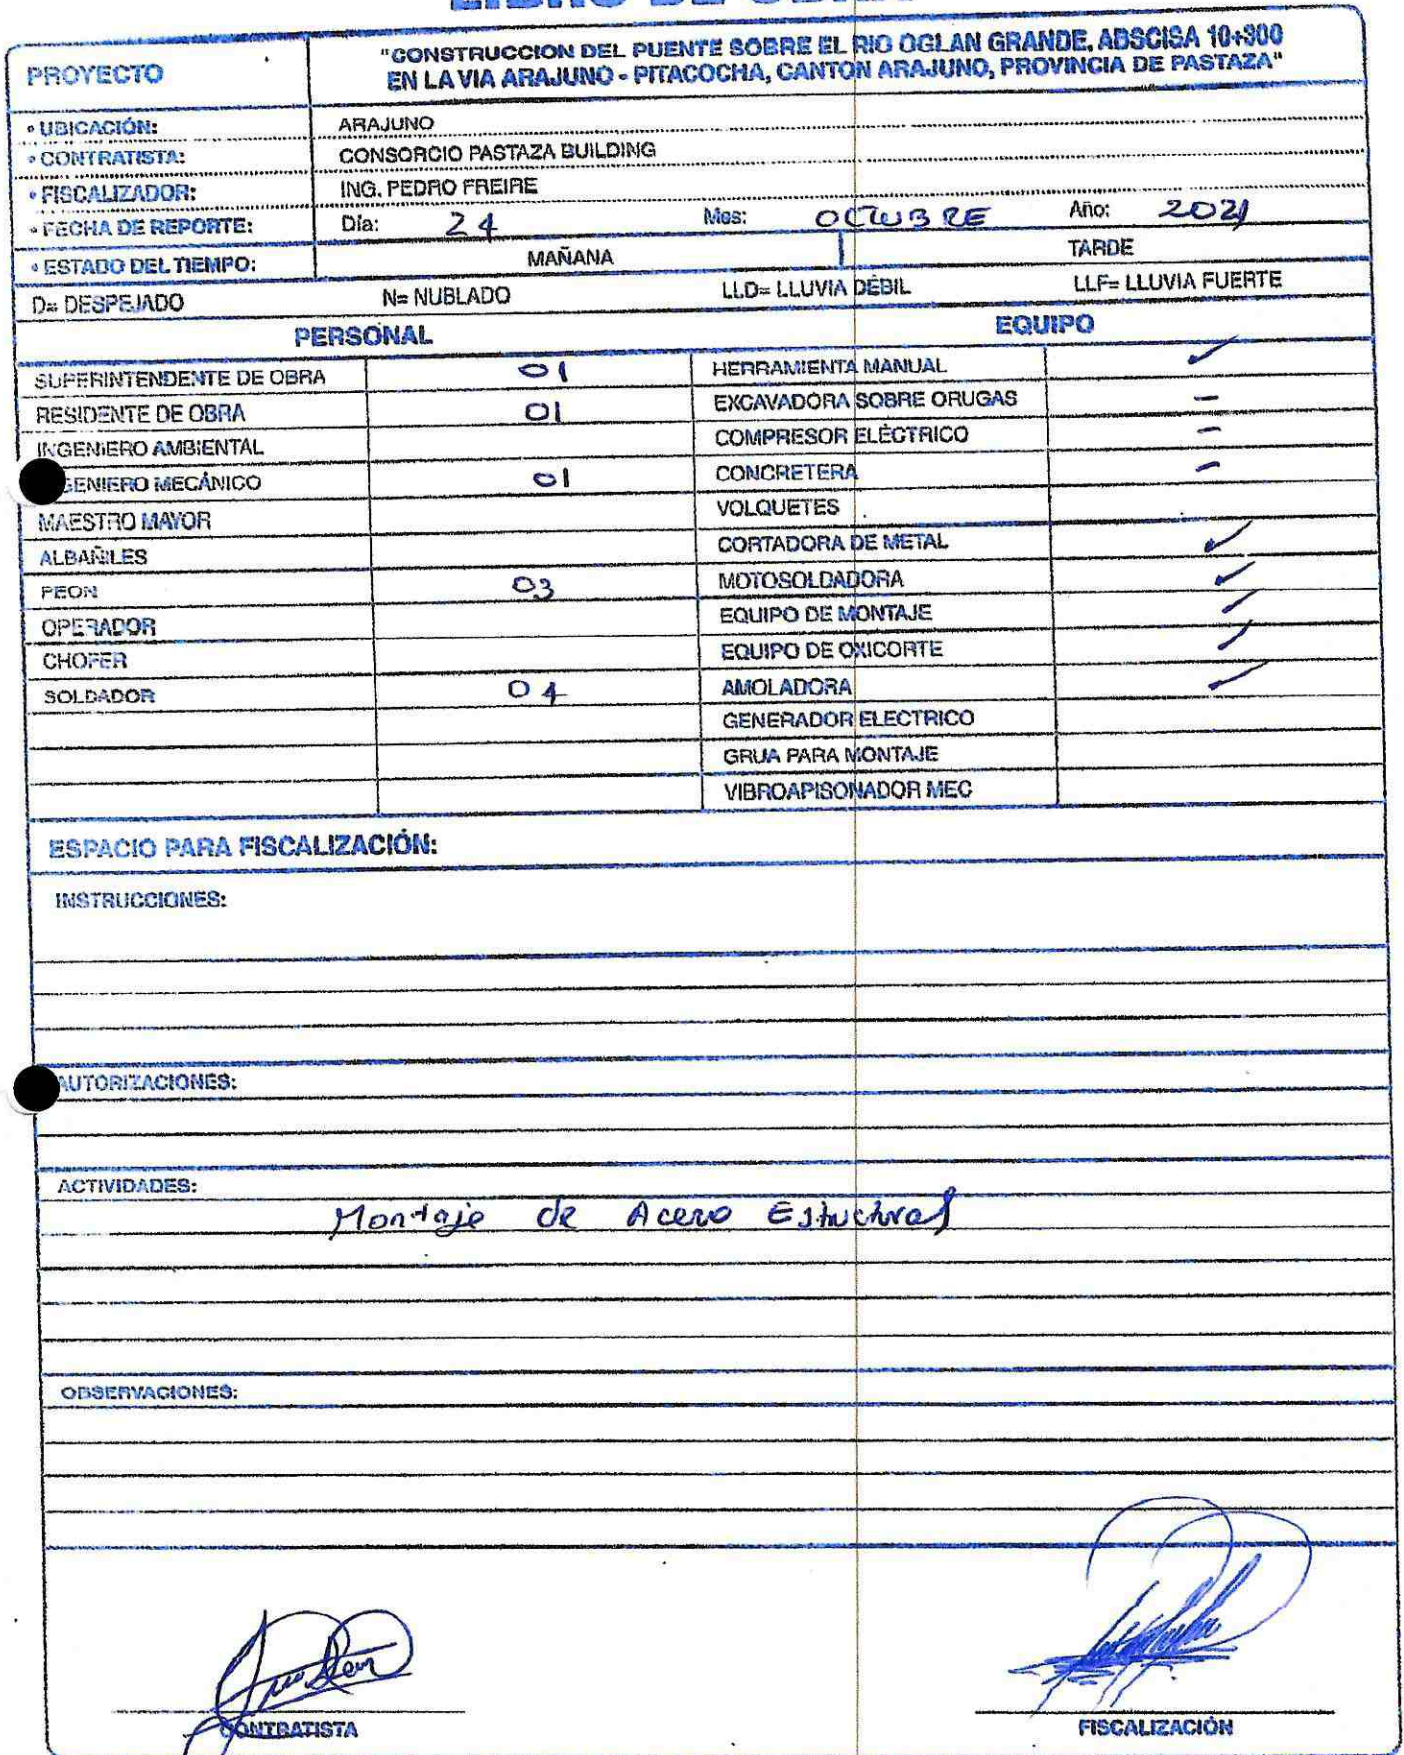 LIBRO DE OBRA
PROYECTO
"CONSTRUCCION DEL PUENTE SOBRE EL RIO OGLAN GRANDE, ABSCISA 10+900
EN LA VIA ARAJUNO - PITACOCHA, CANTON ARAJUNO, PROVINCIA DE PASTAZA"
• UBICACIÓN: ARAJUNO
• CONTRATISTA: CONSORCIO PASTAZA BUILDING
• FISCALIZADOR: ING. PEDRO FREIRE
• FECHA DE REPORTE: Día: 24 Mes: OCTUBRE Año: 2021
• ESTADO DEL TIEMPO: MAÑANA TARDE
D= DESPEJADO N= NUBLADO LLD= LLUVIA DÉBIL LLF= LLUVIA FUERTE
PERSONAL EQUIPO
SUPERINTENDENTE DE OBRA 01 HERRAMIENTA MANUAL ✓
RESIDENTE DE OBRA 01 EXCAVADORA SOBRE ORUGAS -
INGENIERO AMBIENTAL COMPRESOR ELÉCTRICO -
GENIERO MECÁNICO 01 CONCRETERA -
MAESTRO MAYOR VOLQUETES
ALBAÑILES CORTADORA DE METAL ✓
PEON 03 MOTOSOLDADORA ✓
OPERADOR EQUIPO DE MONTAJE ✓
CHOFER EQUIPO DE OXICORTE ✓
SOLDADOR 04 AMOLADORA ✓
GENERADOR ELECTRICO
GRUA PARA MONTAJE
VIBROAPISONADOR MEC
ESPACIO PARA FISCALIZACIÓN:
INSTRUCCIONES:
AUTORIZACIONES:
ACTIVIDADES:
Montaje de Acero Estructural
OBSERVACIONES:
CONTRATISTA FISCALIZACIÓN